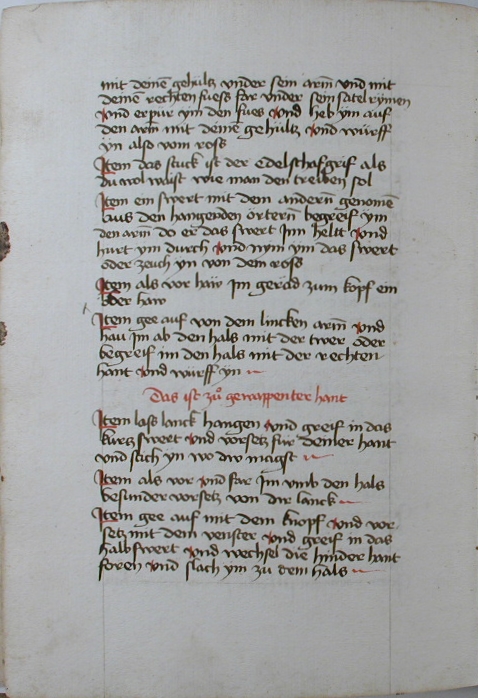 mit deinē gehültz vnder sein arm̄ vnd mit
deinē rechten fuess far vnder sein satel rymen
vnd erpur ym den fues vnd heb ym auf
den arm̄ mit deinē gehültz vnd würff
yn also vom ross
Item das stuck ist der Edelschafgrif als
du wol waist wie man den treiben sol
Item ein swert mit dem andern̄ genomē
aus den hangenden örtern̄ begreif ym
den arm̄ do er das swert Inn heltt vnd
hurt ym durch vnd nym ym das swert
oder zeuch yn von dem ross
Item als vor haw Im gerad zum kopf ein
oder haw
Item gee auf von dem lincken arm̄ vnd
hau im ab den hals mit der twer oder
begreif im den hals mit der rechten
hant vnd würff yn
Das ist zů gewappenter hant
Item lass lanck hangen vnd greif in das
kurtz swert vnd vorsetz für deiner hant
vnd stich yn wo dw magst
Item als vor vnd far Im vmb den hals
besunder vorsetz von dir lanck
Item gee auf mit dem knopf vnd vor
setz mit dem venster vnd greif in das
halb swert vnd wechsel die hinder hant
foren vnd slach ym zu dem hals